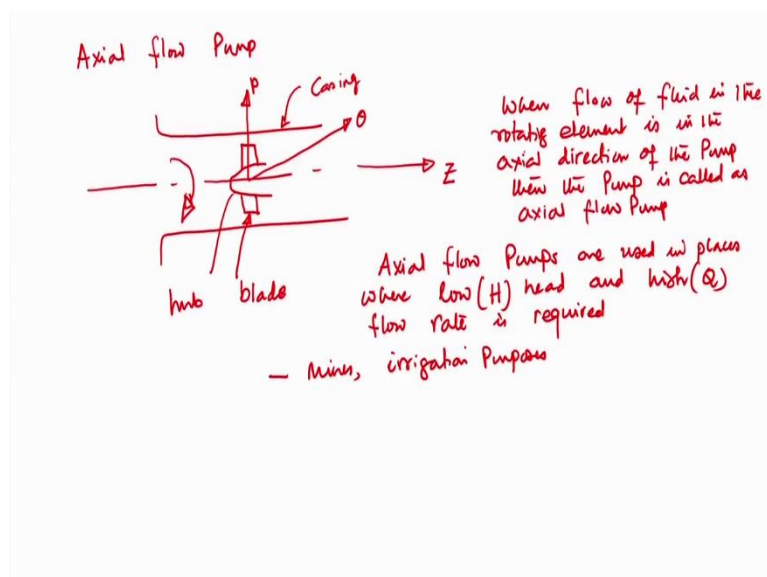 Axial flow Pump
Casing
r
θ
Z
hub blade
When flow of fluid in the
rotating element is in the
axial direction of the Pump
then the Pump is called as
axial flow Pump
Axial flow Pumps are used in places
where low (H) head and high (Q)
flow rate is required
— Mines, irrigation Purposes